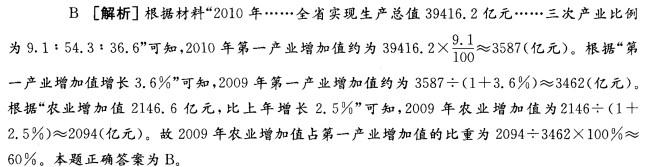 B 【解析】根据材料“2010 年……全省实现生产总值 39416.2 亿元……三次产业比例
为 9.1∶54.3∶36.6”可知,2010 年第一产业增加值约为 39416.2×9.1/100≈3587(亿元)。根据“第
一产业增加值增长 3.6%”可知,2009 年第一产业增加值约为 3587÷(1+3.6%)≈3462(亿元)。
根据“农业增加值 2146.6 亿元,比上年增长 2.5%”可知,2009 年农业增加值为 2146÷(1+
2.5%)≈2094(亿元)。故 2009 年农业增加值占第一产业增加值的比重为 2094÷3462×100%≈
60%。本题正确答案为 B。